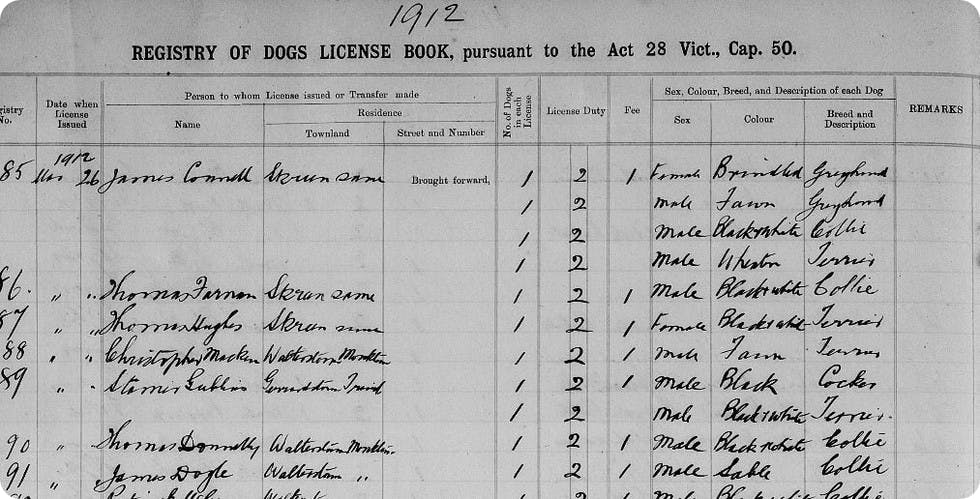 1912
REGISTRY OF DOGS LICENSE BOOK, pursuant to the Act 28 Vict., Cap. 50.
gistry No. Date when License Issued Person to whom License issued or Transfer made No. of Dogs in each License License Duty Fee Sex, Colour, Breed, and Description of each Dog REMARKS
Name Residence Townland Street and Number Sex Colour Breed and Description
1912
85 Mar 26 James Connell Skreen same Brought forward, 1 2 1 Female Brindled Greyhound
1 2 Male Fawn Greyhound
1 2 Male Black & white Collie
1 2 Male Wheaten Terrier
86. " " Thomas Farnan Skreen same 1 2 1 Male Black & white Collie
87 " " Thomas Hughes Skreen same 1 2 1 Female Black & white Terrier
88 " " Christopher Macken Walterstown 1 2 1 Male Fawn Terrier
89 " " 1 2 1 Male Black Cocker
1 2 Male Black & white Terrier.
90 " Thomas Donnelly Walterstown 1 2 1 Male Black & white Collie
91 " James Doyle Walterstown " 1 2 1 Male Sable Collie